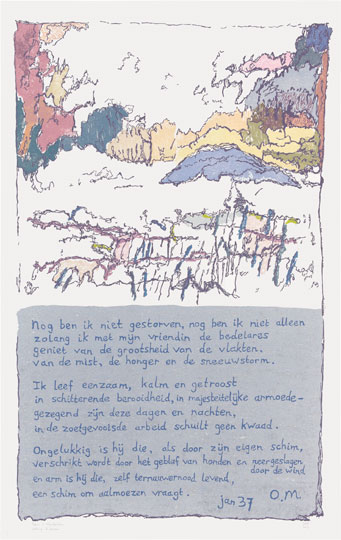 Nog ben ik niet gestorven, nog ben ik niet alleen
zolang ik met mijn vriendin de bedelares
geniet van de grootsheid van de vlakten.
van de mist, de honger en de sneeuwstorm.
Ik leef eenzaam, kalm en getroost
in schitterende berooidheid, in majesteitelijke armoede-
gezegend zijn deze dagen en nachten,
in de zoetgevooisde arbeid schuilt geen kwaad.
Ongelukkig is hij die, als door zijn eigen schim,
verschrikt wordt door het geblaf van honden en neergeslagen
door de wind
en arm is hij die, zelf ternauwernood levend,
een schim om aalmoezen vraagt.
jan 37 O.M.